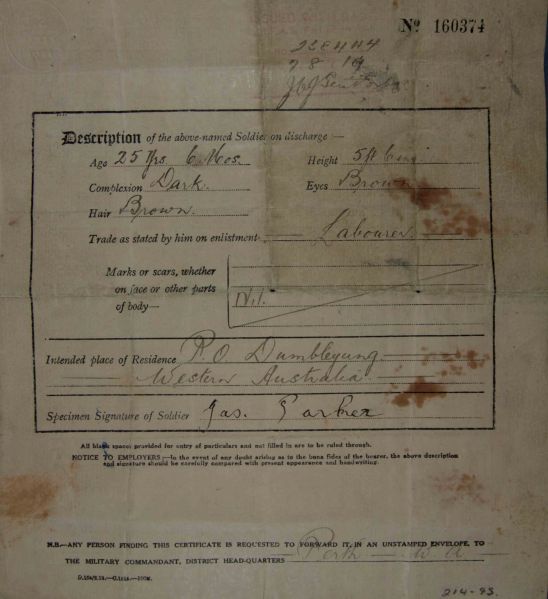 Nº 160374
228444
7 8 19
Description of the above-named Soldier on discharge:—
Age 25 Yrs 6 Mos. Height 5 ft 6 ins
Complexion Dark. Eyes Brown
Hair Brown.
Trade as stated by him on enlistment Labourer.
Marks or scars, whether
on face or other parts
of body— Nil.
Intended place of Residence P.O. Dumbleyung
Western Australia
Specimen Signature of Soldier Jas. Parker
All blank spaces provided for entry of particulars and not filled in are to be ruled through.
NOTICE TO EMPLOYERS:—In the event of any doubt arising as to the bona fides of the bearer, the above description
and signature should be carefully compared with present appearance and handwriting.
N.B.—ANY PERSON FINDING THIS CERTIFICATE IS REQUESTED TO FORWARD IT, IN AN UNSTAMPED ENVELOPE, TO
THE MILITARY COMMANDANT, DISTRICT HEAD-QUARTERS Perth W.A
214-93.